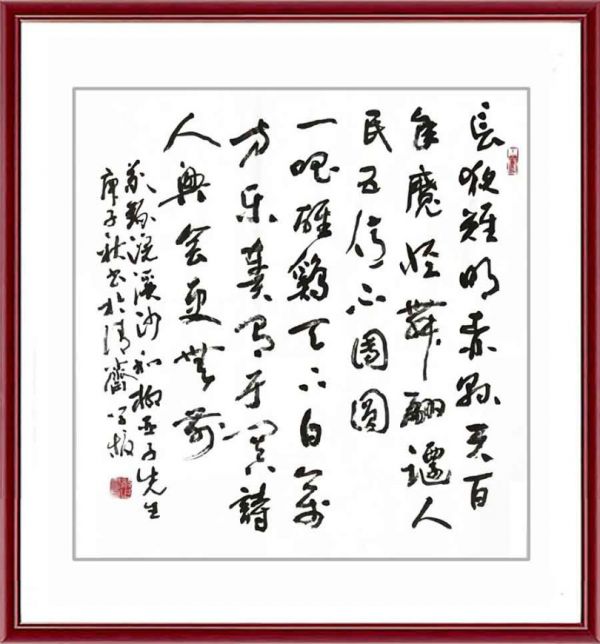 長夜難明赤縣天百
年魔怪舞翩躚人
民五億不團圓
一唱雄鷄天下白萬
方乐奏有于闐詩
人興會更無前
浣溪沙和柳亚子先生
庚子秋书於清齋